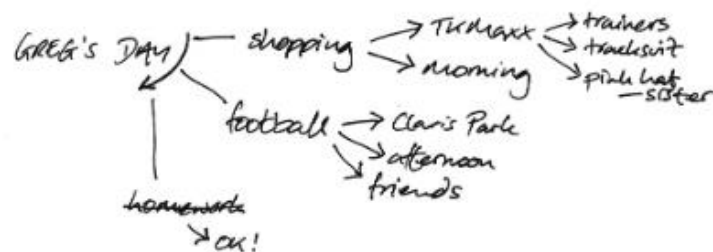 GREG'S DAY
shopping
TK Maxx
trainers
tracksuit
pink hat
— sister
morning
football
Claris Park
afternoon
friends
homework
OK!